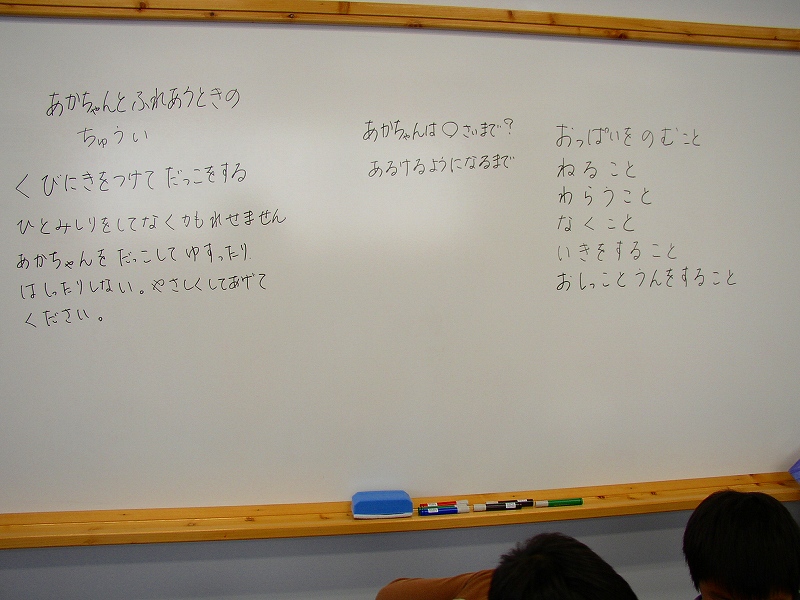 あかちゃんとふれあうときの
ちゅうい
くびにきをつけて だっこをする
ひとみしりをしてなくかもれせません
あかちゃんを だっこして ゆすったり
はしったりしない。やさしくしてあげて
ください。
あかちゃんは〇さいまで？
あるけるようになるまで
おっぱいをのむこと
ねること
わらうこと
なくこと
いきをすること
おしっことうんをすること